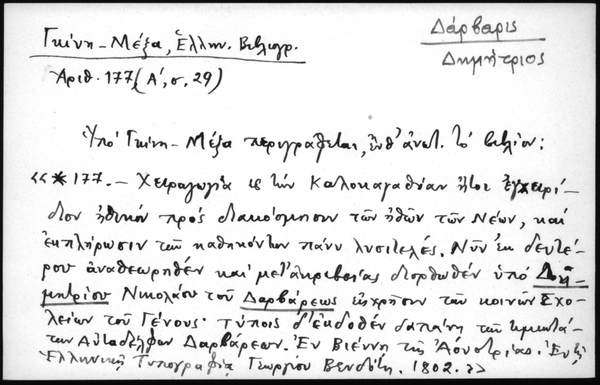 Γκίνη-Μέξα, Ἑλλην. Βιβλιογρ.
Ἀριθ. 177 (Α', σ. 29)
Δάρβαρις
Δημήτριος
Ὑπό Γκίνη-Μέξα περιγράφεται, ἔνθ' ἀνωτ. τό βιβλίον:
«*177.— Χειραγωγία εἰς τήν Καλοκαγαθίαν ἤτοι ἐγχειρί-
διον ἠθικόν πρός διακόσμησιν τῶν ἠθῶν τῶν Νέων, καί
ἐκπλήρωσιν τῶν καθηκόντων πάνυ λυσιτελές. Νῦν ἐκ δευτέ-
ρου ἀναθεωρηθέν καί μετ' ἀκριβείας διορθωθέν ὑπό Δη-
μητρίου Νικολάου τοῦ Δαρβάρεως εἰς χρῆσιν τῶν κοινῶν Σχο-
λείων τοῦ Γένους· τύποις δ' ἐκδοθέν δαπάνῃ τῶν τιμιωτά-
των Αὐταδέλφων Δαρβάρεων. Ἐν Βιέννῃ τῆς Ἀουστρίας. Ἐν τῇ
Ἑλληνικῇ Τυπογραφίᾳ Γεωργίου Βενδότη. 1802.»